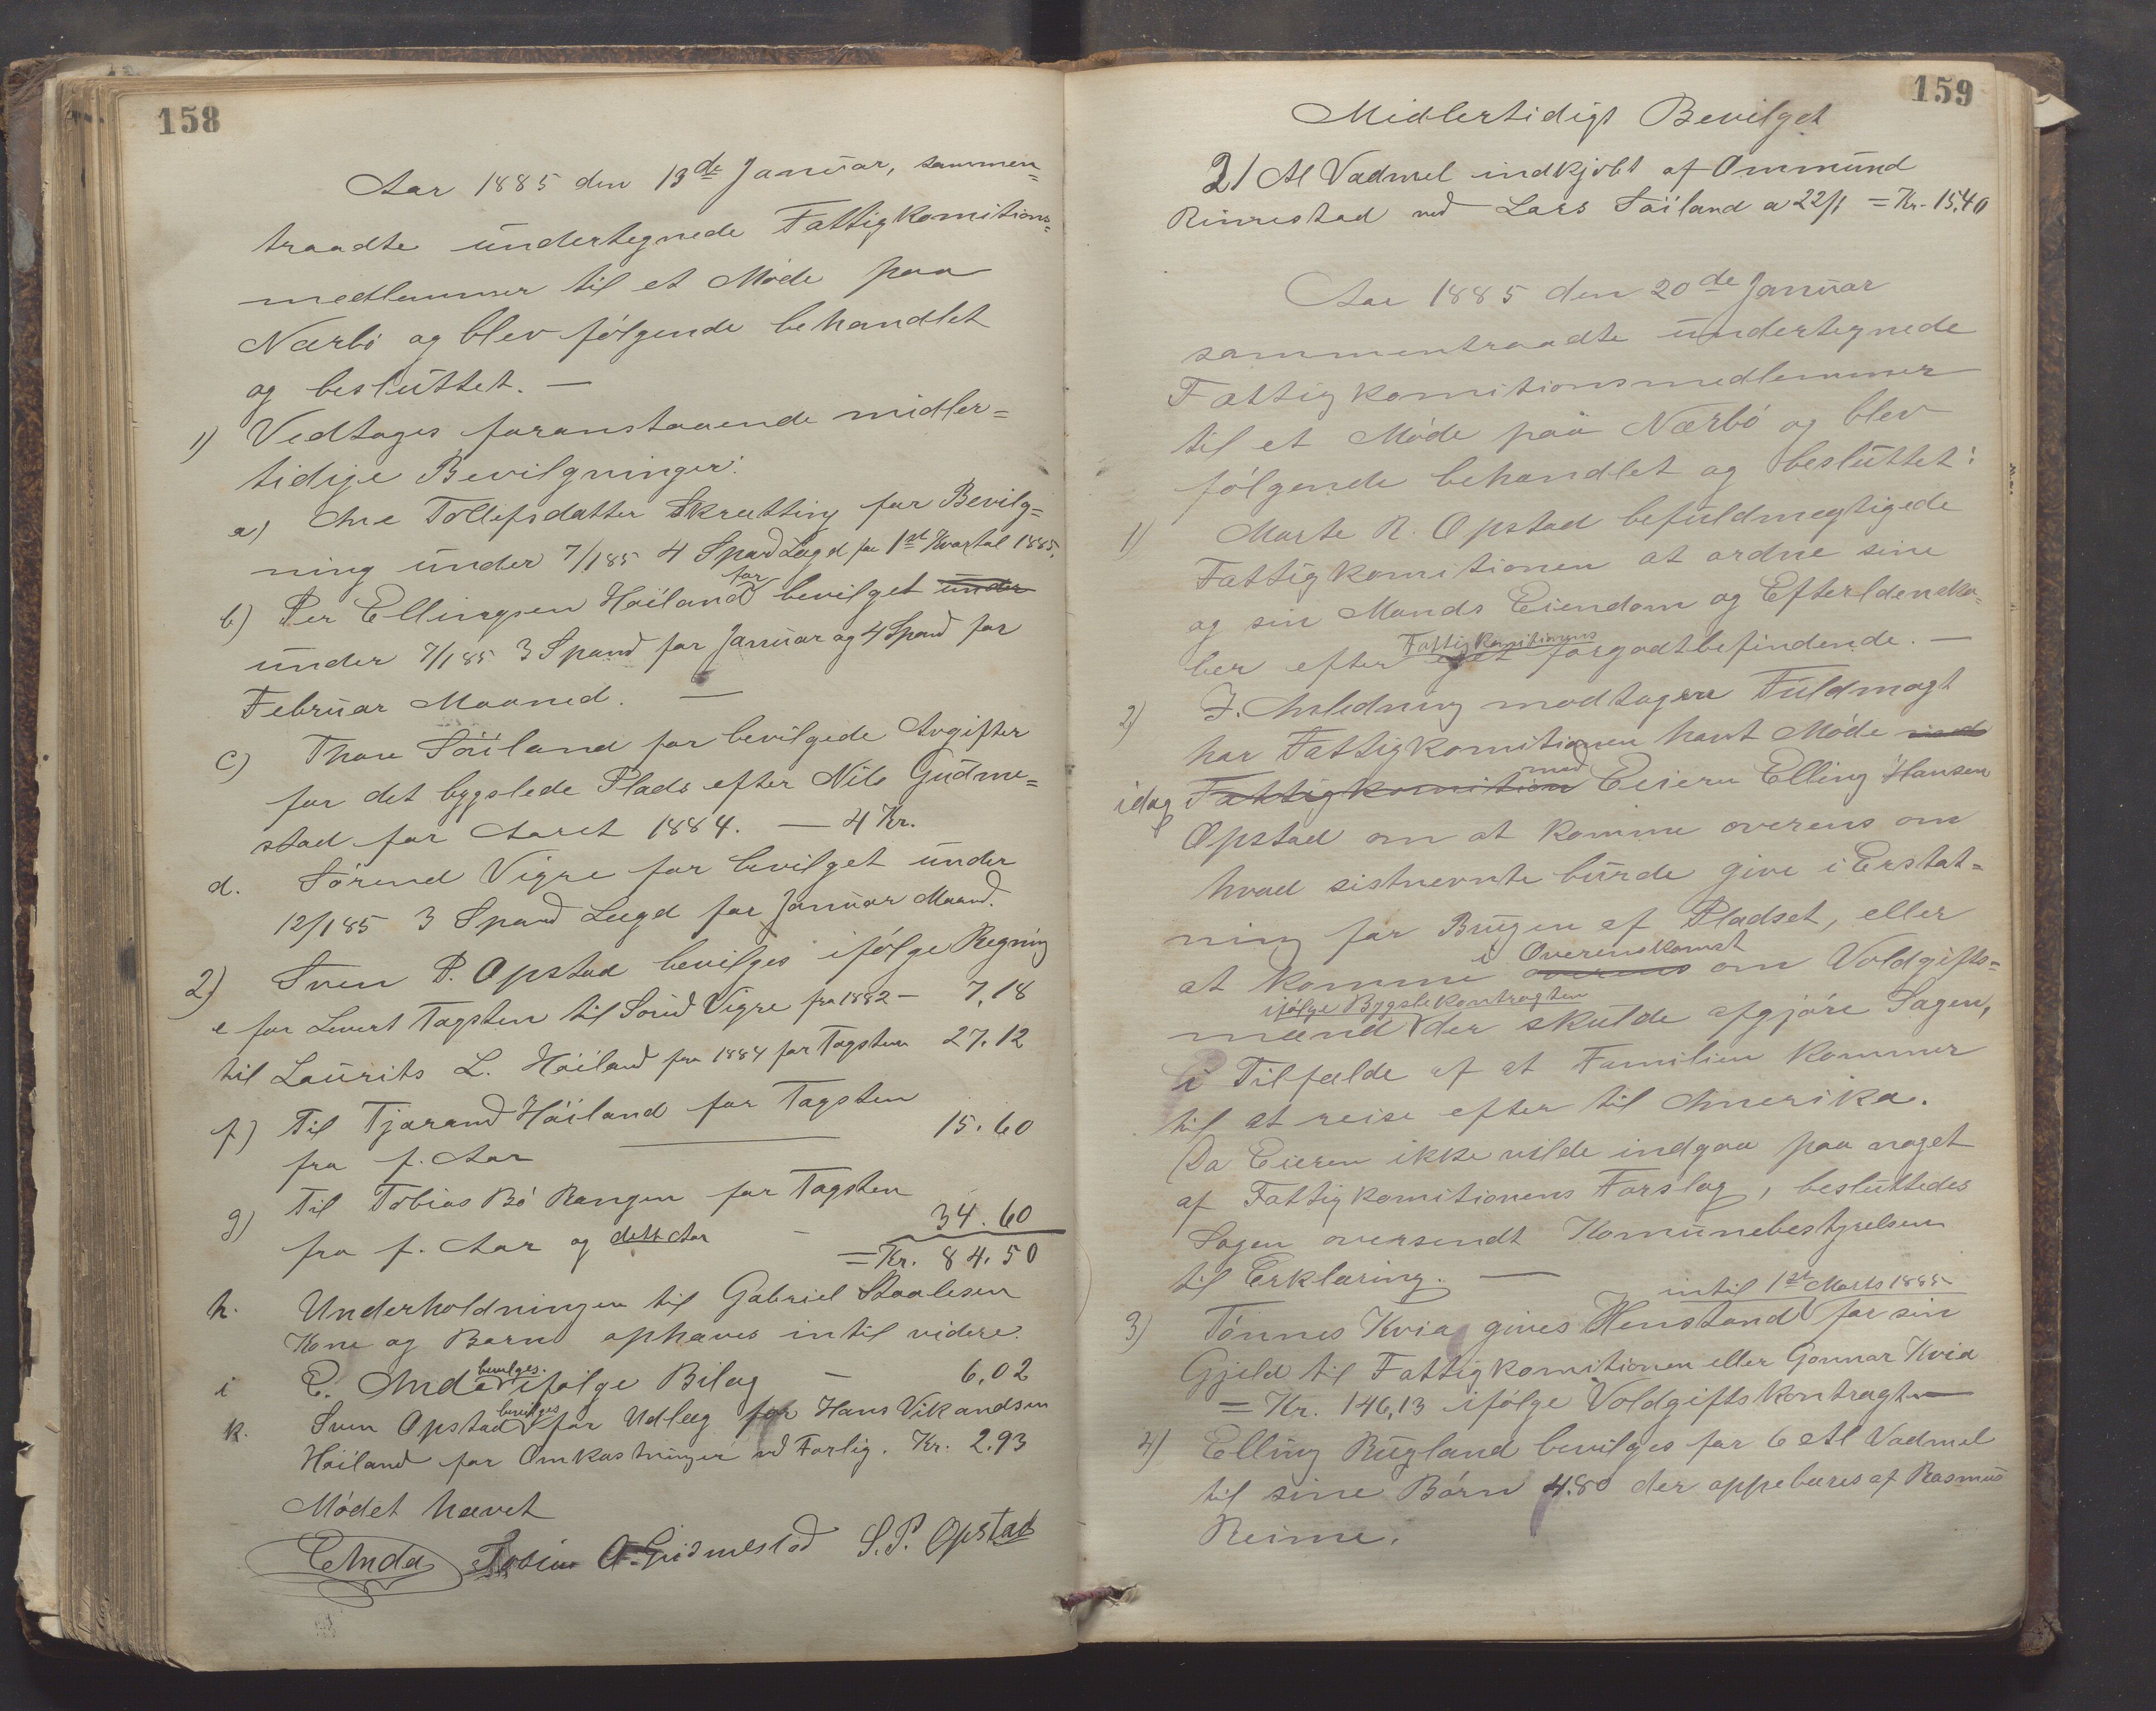 158
Aar 1885 den 13de Januar, sammen=
traadte undertegnede Fattigkomitions=
medlemmer til et Møde paa
Nærbø og blev følgende behandlet
og besluttet. —
1) Vedtages foranstaaende midler=
tidige Bevilgninger:
a) Ane Tollefsdatter Skretting for Bevilg=
ning under 7/1 85 4 Spand Lægd for 1st Kvartal 1885.
b) Per Ellingsen Høiland for bevilget under
under 7/1 85 3 Spand for Januar og 4 Spand for
Februar Maaned. —
c) Thore Søiland for bevilgede Avgifter
for det bygslede Plads efter Nils Gudme=
stad for Aaret 1884. — 4 Kr.
d. Sørend Vigre for bevilget under
12/1 85 3 Spand Lægd for Januar Maand.
2) Sven P. Opstad bevilges ifølge Regning
e for Levert Tagsten til Sørend Vigre fra 1882 — 7,18
til Laurits L. Høiland fra 1884 for Tagsten 27.12
f) Til Tjerand Høiland for Tagsten
fra f. Aar 15.60
g) Til Tobias Bø Rangen for Tagsten
fra f. Aar og dette Aar — 34.60
= Kr. 84.50
h. Underholdningen til Gabriel Staalesen
Kone og Barn ophæves intil videre.
i E. Anda bevilges ifølge Bilag — 6,02
k. Sven Opstad bevilges for Udlæg for Hans Vikandsen
Høiland for Omkostninger ved Forlig. Kr. 2.93
Mødet hævet
E Anda Tosten A. Gudmestad S. P. Opstad
159
Midlertidigt Bevilget
21 Al Vadmel indkjøbt af Ommund
Rinnestad ved Lars Søiland a 22/1 = Kr. 15,40
Aar 1885 den 20de Januar
sammentraadte undertegnede
Fattigkomitionsmedlemmer
til et Møde paa Nærbø og blev
følgende behandlet og besluttet:
1) Marte R. Opstad befuldmegtigede
Fattigkomitionen at ordne sine
og sin Mands Eiendom og Efterldenska=
ber efter eget Fattigkomitionens forgodtbefindende. —
2) I Anledning modtagene Fuldmagt
har Fattigkomitionen havt Møde med
idag Fattigkomition med Eieren Elling Hansen
Opstad om at komme overens om
hvad sistnevnte burde give i Erstat=
ning for Brugen af Pladset, eller
at komme overens i Overenskomst om Voldgifts=
mænd ifølge Bygslekontragten der skulde afgjøre Sagen,
i Tilfælde af at Familien kommer
til at reise efter til Amerika.
Da Eieren ikke vilde indgaa paa noget
af Fattigkomitionens Forslag, besluttedes
Sagen oversendt Komunebestyrelsen
til Erklæring. —
3) Tønnes Kvia gives Henstand intil 1st Marts 1885 for sin
Gjeld til Fattigkomitionen eller Gonnar Kvia
= Kr. 146,13 ifølge Voldgiftskontragten —
4) Elling Rugland bevilges for 6 Al Vadmel
til sine Børn 4.80 der oppebæres af Rasmus
Reime.